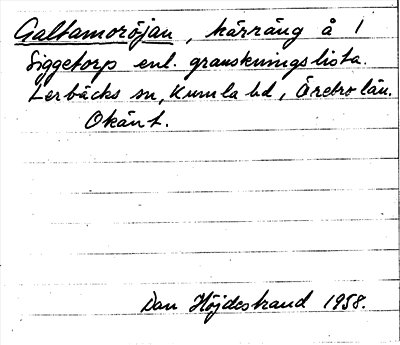 Galtamoröjan, kärräng å 1
Siggetorp enl. granskningslista.
Lerbäcks sn, Kumla hd, Örebro län.
Okänt.
Dan Höjdestrand 1958.